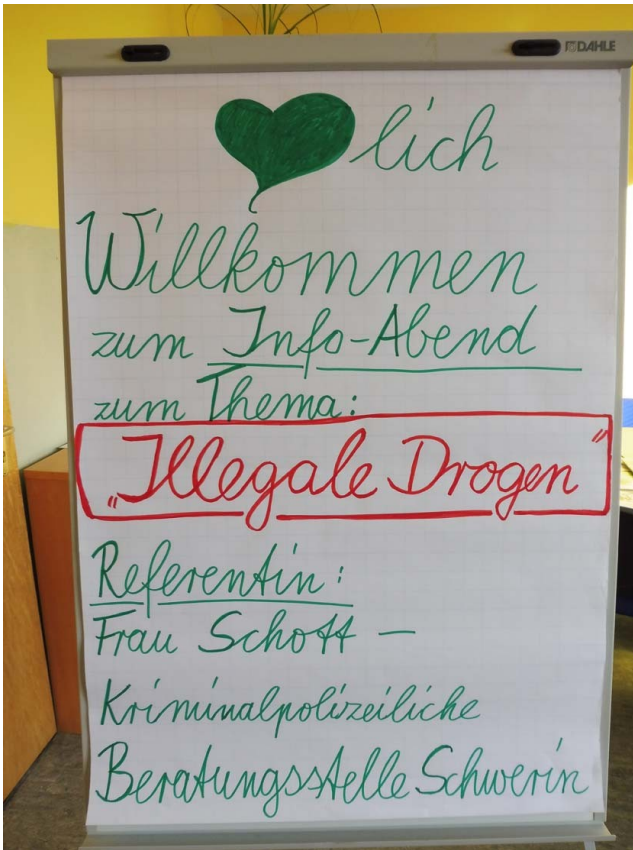 DAHLE
lich
Willkommen
zum Info-Abend
zum Thema:
„Illegale Drogen“
Referentin:
Frau Schott –
Kriminalpolizeiliche
Beratungsstelle Schwerin